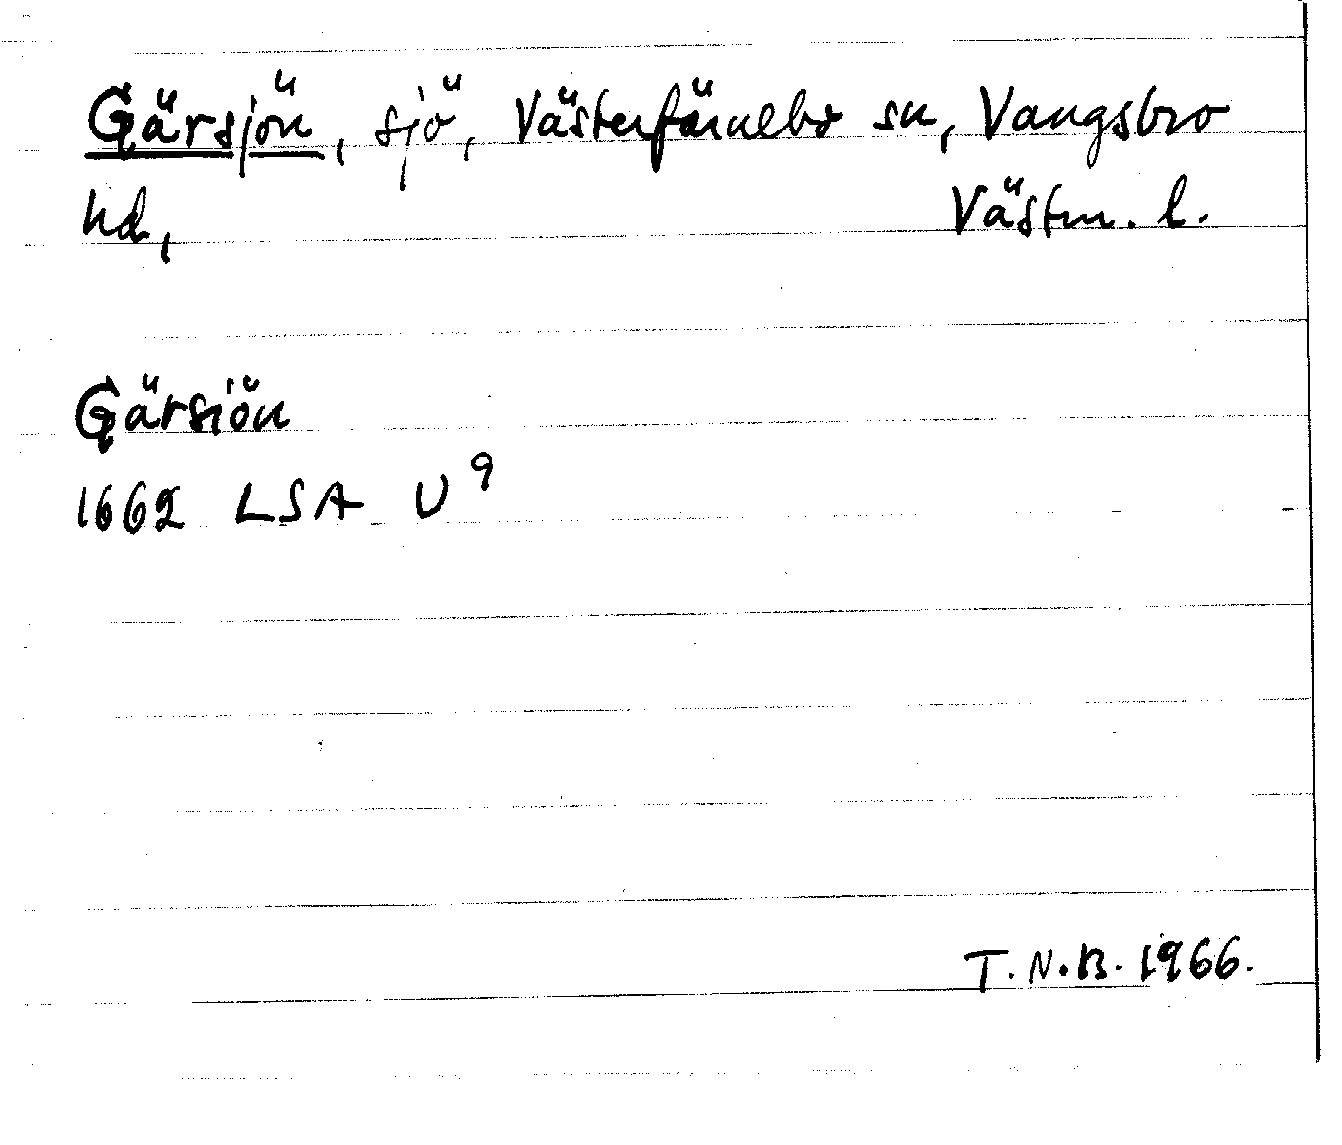 Gärsjön, sjö, Västerfärnebo sn, Vangsbro
hd, Västm. l.
Gärsiön
1662 LSA U9
T.N.B. 1966.